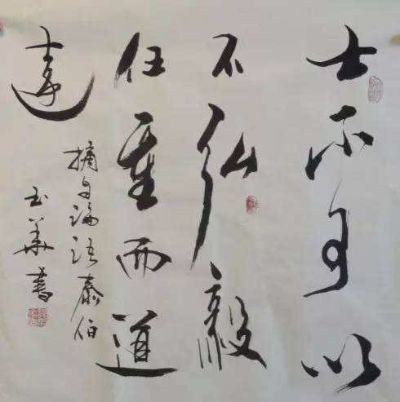 士不可以
不弘毅
任重而道
遠
摘自论语泰伯
玉华书